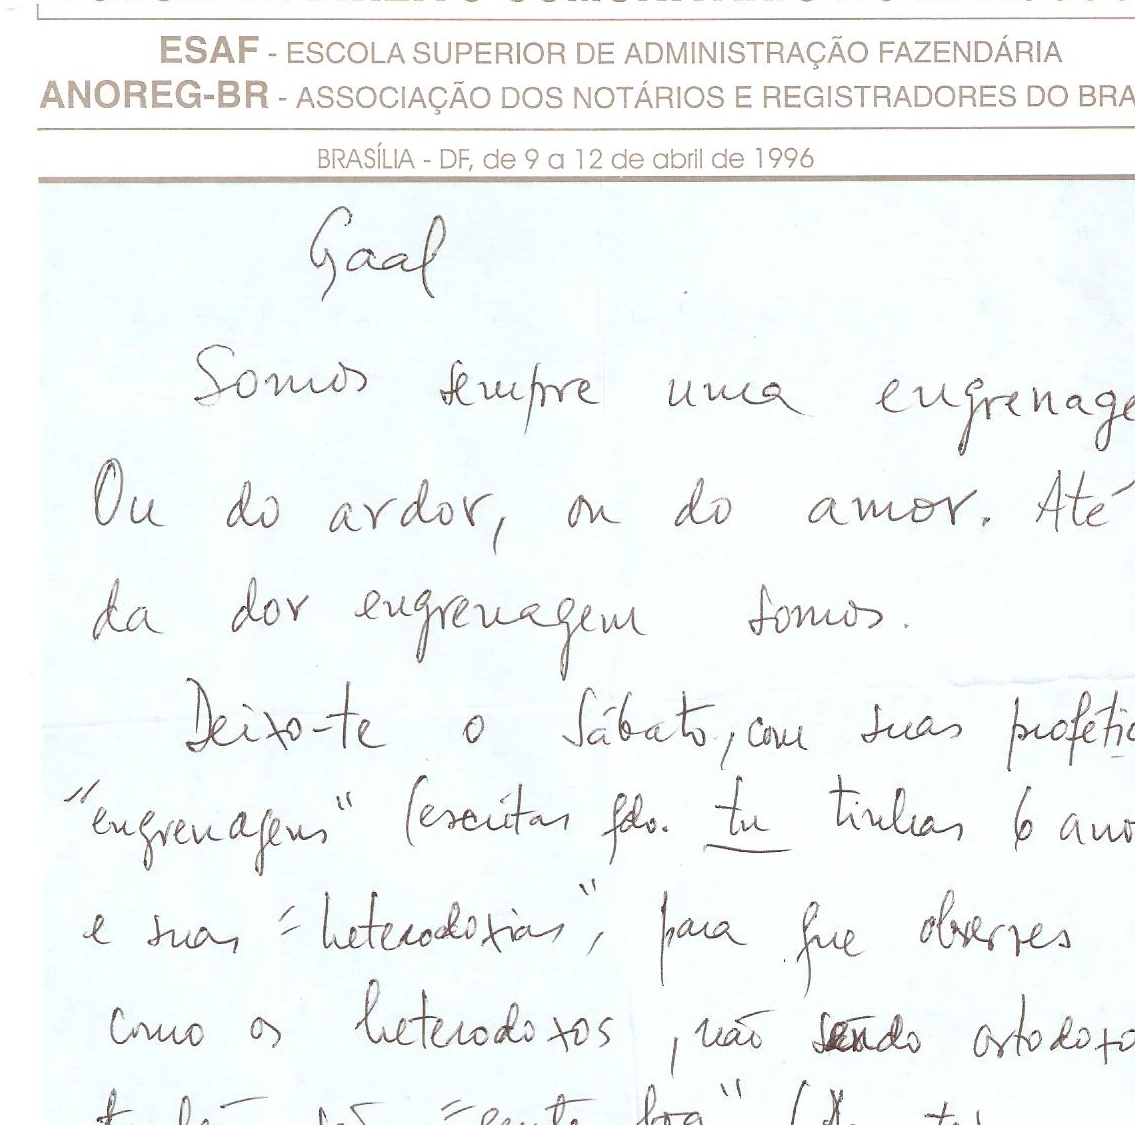 ESAF - ESCOLA SUPERIOR DE ADMINISTRAÇÃO FAZENDÁRIA
ANOREG-BR - ASSOCIAÇÃO DOS NOTÁRIOS E REGISTRADORES DO BRA
BRASÍLIA - DF, de 9 a 12 de abril de 1996
Gaal
Somos sempre uma engrenage
Ou do ardor, ou do amor. Até
da dor engrenagem somos.
Deixo-te o Sábato, com suas profétic
"engrenagens" (escritas qdo. tu tinhas 6 ano
e suas "heterodoxias", para que observes
como os heterodoxos, não sendo ortodoxo
também são "gente boa"